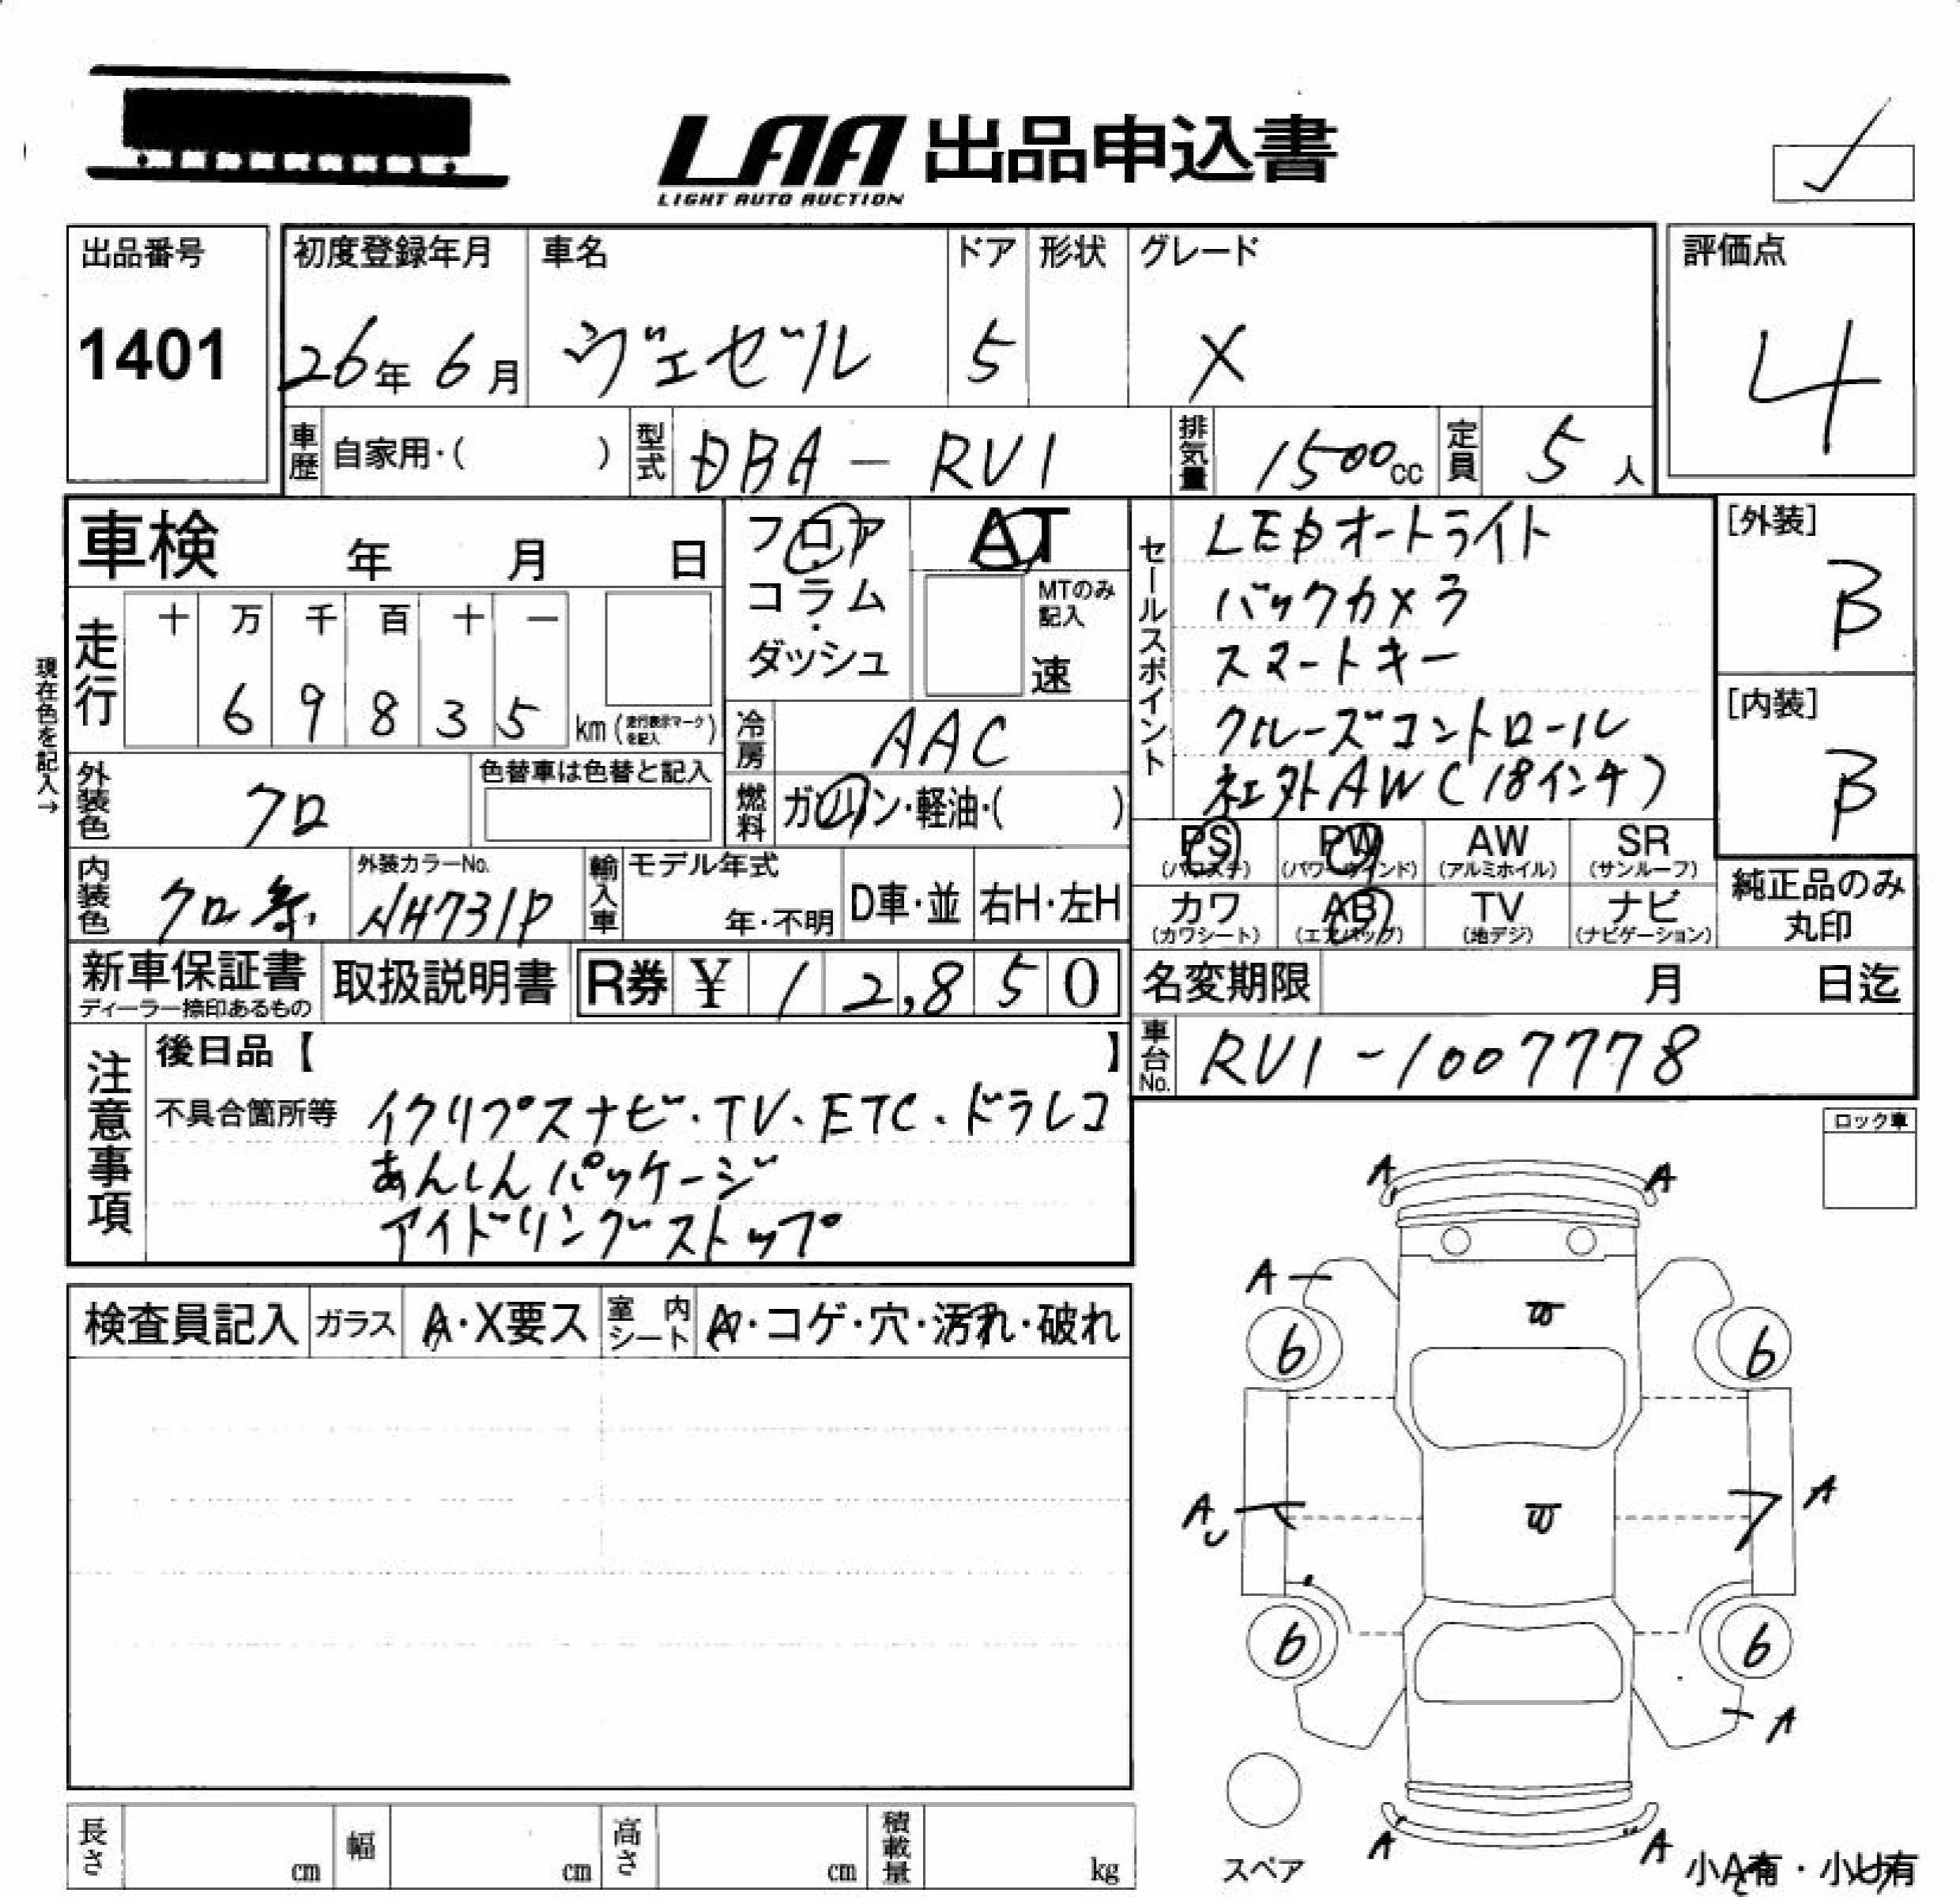 LAA 出品申込書
LIGHT AUTO AUCTION
出品番号
1401
初度登録年月
26年 6月
車名
ヴェゼル
ドア
5
形状
グレード
X
評価点
4
車歴 自家用・( )
型式 DBA-RU1
排気量 1500cc
定員 5人
車検 年 月 日
フロア
コラム
・
ダッシュ
AT
MTのみ
記入
速
セールスポイント
LEDオートライト
バックカメラ
スマートキー
クルーズコントロール
社外AW(18インチ)
[外装]
B
[内装]
B
現在色を記入→
走行
十 万 千 百 十 一
6 9 8 3 5 km (走行表示マークを記入)
冷房 AAC
外装色 クロ
色替車は色替と記入
燃料 ガソリン・軽油・( )
PS AW SR
PW
(パワステ) (パワーウィンド) (アルミホイル) (サンルーフ)
カワ AB TV ナビ
(カワシート) (エアバッグ) (地デジ) (ナビゲーション)
純正品のみ
丸印
内装色 クロ系
外装カラーNo.
NH731P
輸入車
モデル年式
年・不明
D車・並
右H・左H
新車保証書
ディーラー捺印あるもの
取扱説明書
R券 ¥ 12,850
名変期限 月 日迄
車台No. RU1-1007778
注意事項
後日品【 】
不具合箇所等 イクリプスナビ・TV・ETC・ドラレコ
あんしんパッケージ
アイドリングストップ
ロック車
検査員記入
ガラス A・X要ス
室内シート A・コゲ・穴・汚れ・破れ
A A
A
W
6 6
A
W
A
6 6
A
A A
スペア
小A有・小U有
長さ cm
幅 cm
高さ cm
積載量 kg